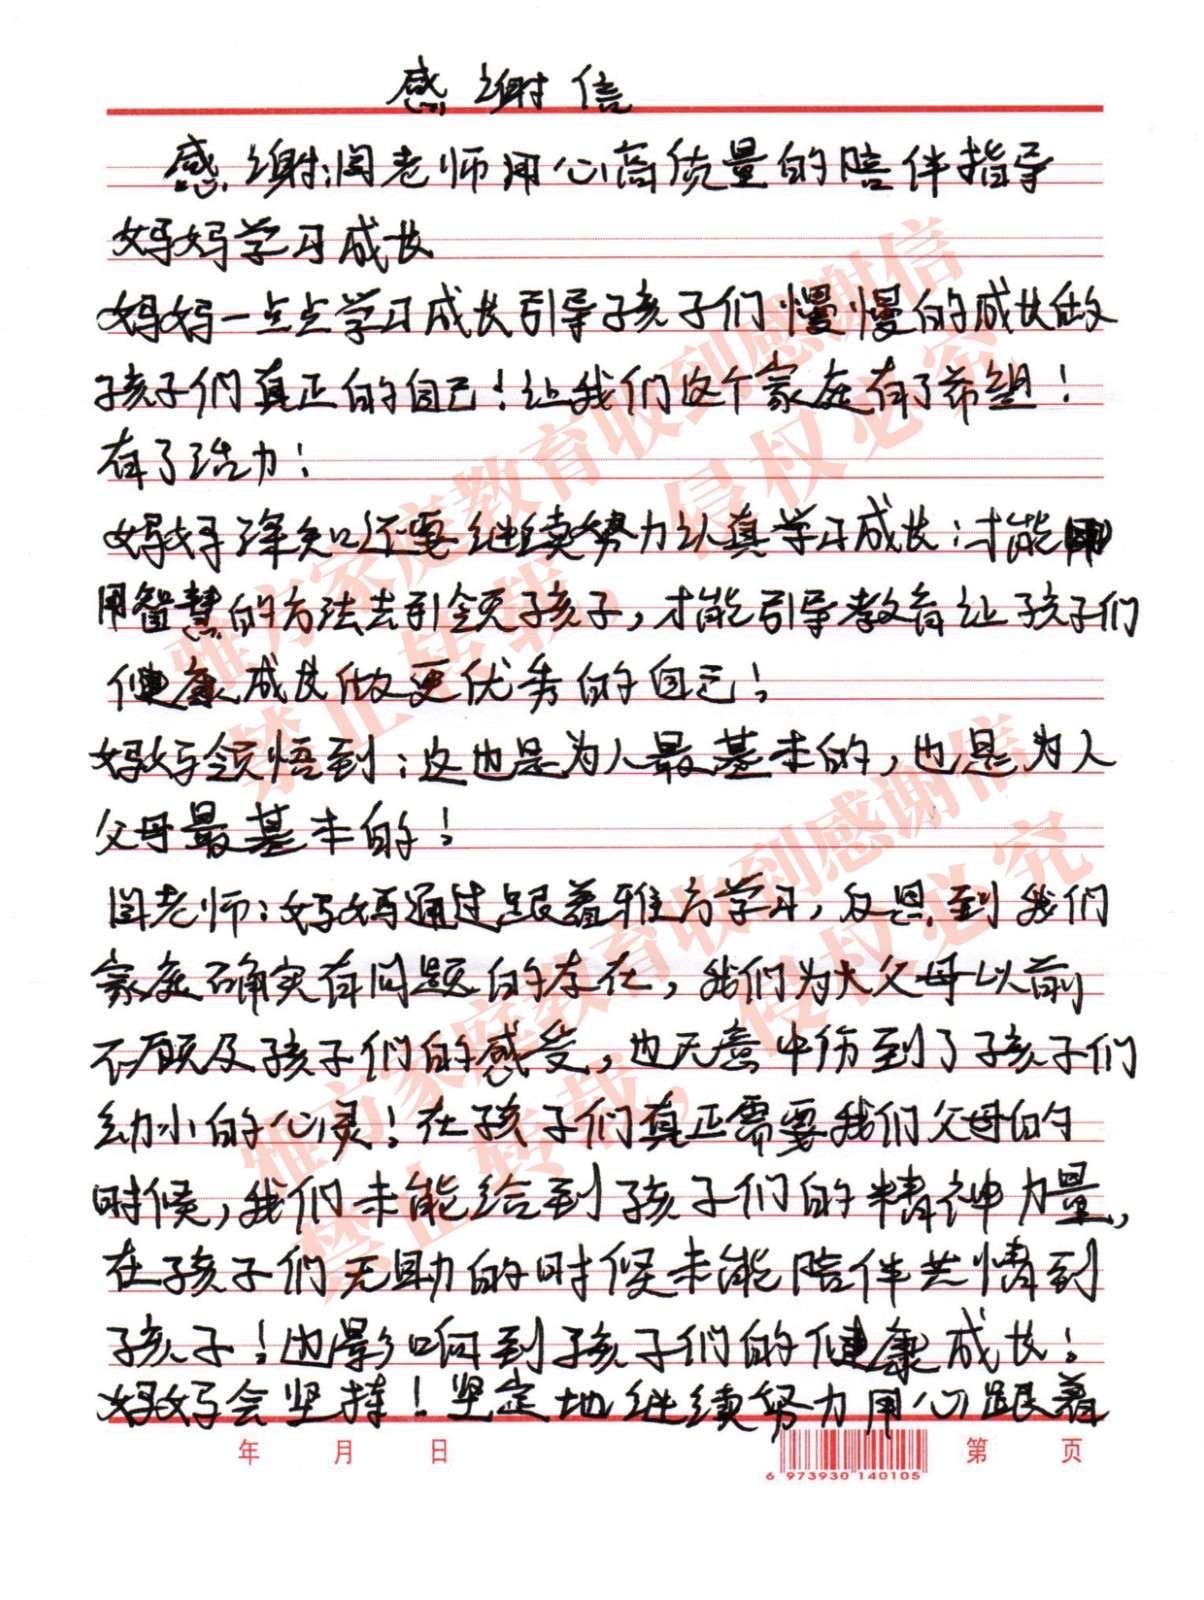 感谢信
感谢:闫老师用心高质量的陪伴指导
妈妈学习成长
妈妈一点点学习成长引导孩子们慢慢的成长做
孩子们真正的自己!让我们这个家庭有了希望!
有了活力!
妈妈深知还要继续努力认真学习成长;才能
用智慧的方法去引领孩子,才能引导教育让孩子们
健康成长做更优秀的自己!
妈妈领悟到:这也是为人最基本的,也是为人
父母最基本的!
闫老师:妈妈通过跟着雅方学习,反思到我们
家庭确实有问题的存在,我们为大父母以前
不顾及孩子们的感受,也无意中伤到了孩子们
幼小的心灵!在孩子们真正需要我们父母的
时候,我们未能给到孩子们的精神力量,
在孩子们无助的时候未能陪伴共情到
孩子!也影响到孩子们的健康成长!
妈妈会坚持!坚定地继续努力用心跟着
年 月 日
6 973930 140105
第 页
雅方家庭教育收到感谢信
禁止转载,侵权必究
雅方家庭教育收到感谢信
禁止转载,侵权必究